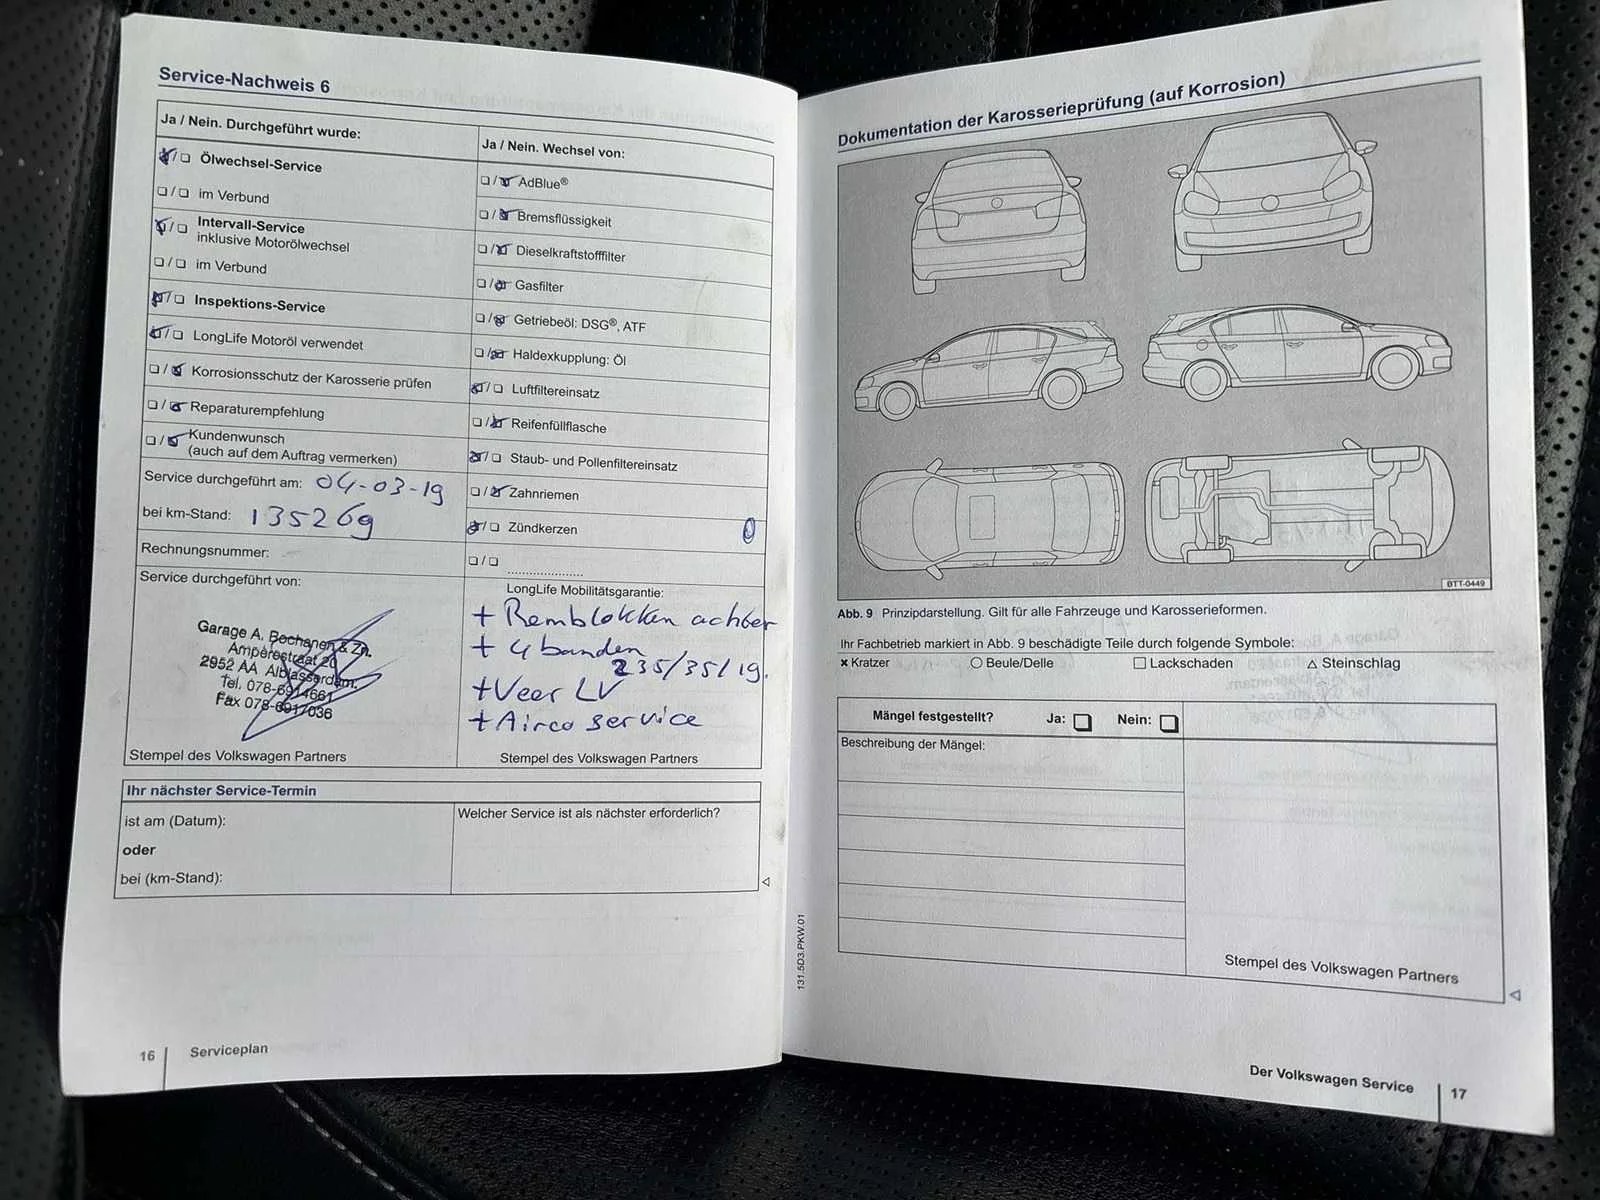 Service-Nachweis 6
Ja / Nein. Durchgeführt wurde:
Ölwechsel-Service
im Verbund
Intervall-Service
inklusive Motorölwechsel
im Verbund
Inspektions-Service
LongLife Motoröl verwendet
Korrosionsschutz der Karosserie prüfen
Reparaturempfehlung
Kundenwunsch
(auch auf dem Auftrag vermerken)
Service durchgeführt am: 04-03-19
bei km-Stand: 135269
Rechnungsnummer:
Service durchgeführt von:
Garage A. Bochanen & Zn.
Ampèrestraat 20
2952 AA Alblasserdam.
Tel. 078-6914661
Fax 078-6917036
Stempel des Volkswagen Partners
Ja / Nein. Wechsel von:
AdBlue®
Bremsflüssigkeit
Dieselkraftstofffilter
Gasfilter
Getriebeöl: DSG®, ATF
Haldexkupplung: Öl
Luftfiltereinsatz
Reifenfüllflasche
Staub- und Pollenfiltereinsatz
Zahnriemen
Zündkerzen
LongLife Mobilitätsgarantie:
+ Remblokken achter
+ 4 banden
235/35/19.
+ Veer LV
+ Airco service
Stempel des Volkswagen Partners
Ihr nächster Service-Termin
ist am (Datum):
oder
bei (km-Stand):
Welcher Service ist als nächster erforderlich?
16 Serviceplan
131.5D3.PKW.01
Dokumentation der Karosserieprüfung (auf Korrosion)
BTT-0449
Abb. 9 Prinzipdarstellung. Gilt für alle Fahrzeuge und Karosserieformen.
Ihr Fachbetrieb markiert in Abb. 9 beschädigte Teile durch folgende Symbole:
Kratzer Beule/Delle Lackschaden Steinschlag
Mängel festgestellt? Ja: Nein:
Beschreibung der Mängel:
Stempel des Volkswagen Partners
Der Volkswagen Service 17